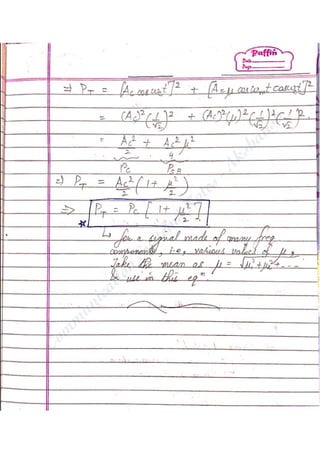 Paffin
Date
Page
⇒ P_T = [A_c cos ω_c t]² + [A_c μ cos ω_m t cos ω_c t]²
= (A_c)² (1/√2)² + (A_c)² (μ)² (1/√2)² (1/√2)².
= A_c²/2 + A_c² μ²/4
P_C P_SB
⇒ P_T = A_c²/2 (1 + μ²/2)
⇒ P_T = P_C [1 + μ²/2]
↳ for a signal made of many freq
components, i.e, various values of μ,
Take the mean as μ = √μ₁² + μ₂² + ....
& use in this eqⁿ.